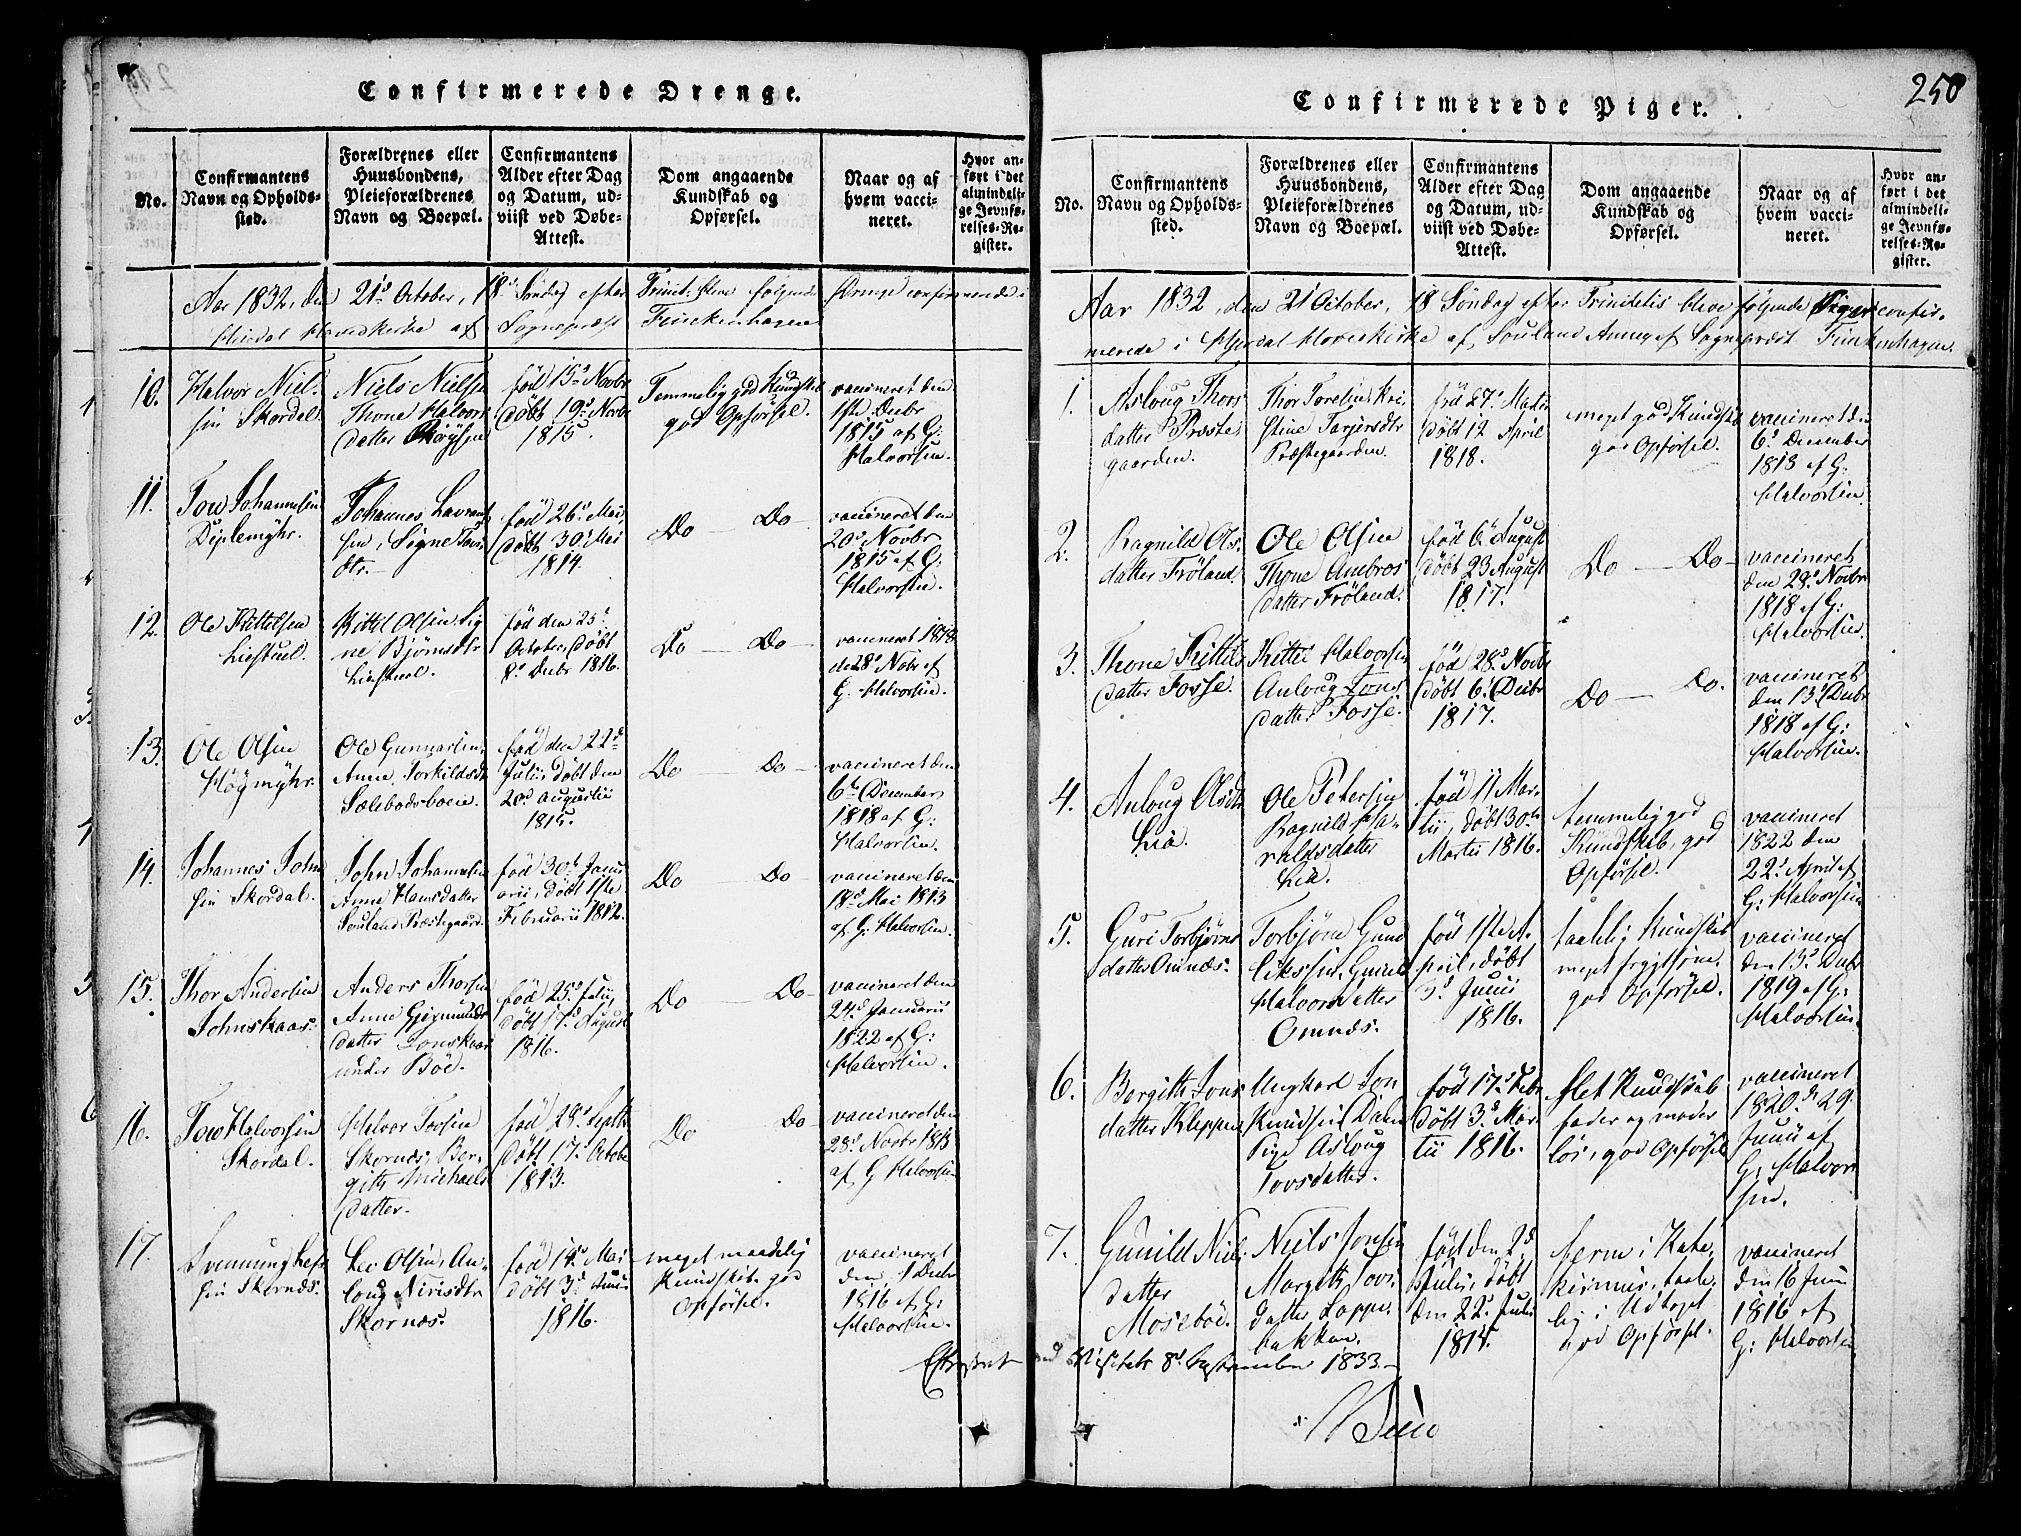 Confirmerede Drenge.
No.
Confirmantens
Navn og Opholds-
sted.
Forældrenes eller
Huusbondens,
Pleieforældrenes
Navn og Boepæl.
Confirmantens
Alder efter Dag
og Datum, ud-
viist ved Døbe-
Attest.
Dom angaaende
Kundskab og
Opførsel.
Naar og af
hvem vacci-
neret.
Hvor an-
ført i det
almindeli-
ge Jevnfø-
relses-Re-
gister.
Aar 1832, den 21de October, 18de Søndag efter Trinit. bleve følgende Drenge confirmerede i
Hierdal Hovedkirke af Sognepræst Finckenhagen
10.
Halvor Niel-
sen Skordal
Niels Nielsen
Thone Halvors
datter Røysen
fød 15de Novbr
døbt 19de Novbr
1815.
Temmelig god Kundskab
god Opførsel.
vaccineret den
1ste Decbr
1815 af G:
Halvorsen.
11.
Tow Johannesen
Diplemyhr.
Johannes Lavrant
sen, Signe Tovs
dtr.
fød 26de Mai,
døbt 30de Mai
1814
Do — Do
vaccineret den
20de Novbr
1815 af G:
Halvorsen.
12.
Ole Kittelsen
Liestuel.
Kittil Olsen Sig
ne Bjørnsdtr
Liestuel.
fød den 25de
October, døbt
8de Decbr 1816.
Do — Do
vaccineret 1818
de 28de Nobr af
G. Halvorsen.
13.
Ole Olsen
Høgmyhr.
Ole Gunnarsen,
Anne Torkildsdtr
Sælebodsboen.
fød den 22de
Julii, døbt den
20de Augustii
1815.
Do — Do
vaccineret den
6te December
1818 af G:
Halvorsen.
14.
Johannes John
sen Skordal.
John Johannesen
Anne Hansdatter
Souland Præstegaard
fød 30te Janu
arii, døbt 1ste
Februarii 1812.
Do — Do
vaccineret den
18de Mai 1813
af G: Halvorsen.
15.
Thor Andersen
Johnskaas.
Anders Thorsen
Anne Gjermunds
datter Jonskaas
under Böe.
fød 25de July,
døbt 17de August
1816.
Do — Do
vaccineret den
24de Januarii
1822 af G:
Halvorsen.
16.
Tow Halvorsen
Skordal.
Halvor Tovsen
Skornæs, Ber-
gith Michaels
datter.
fød 28de Septbr
døbt 17de Octobr
1813.
Do — Do
vaccineret den
28de Novbr 1818
af G Halvorsen
17.
Svenung Lef
sen Skornæs.
Lev Olsen, An-
loug Nirisdtr
Skornæs.
fød 14de Mai
døbt 3de Junii
1816.
meget maadelig
Kundskab god
Opførsel.
vaccineret
den 1 Decbr
1816 af G:
Halvorsen.
250
Confirmerede Piger.
No.
Confirmantens
Navn og Opholds-
sted.
Forældrenes eller
Huusbondens,
Pleieforældrenes
Navn og Boepæl.
Confirmantens
Alder efter Dag
og Datum, ud-
viist ved Døbe-
Attest.
Dom angaaende
Kundskab og
Opførsel.
Naar og af
hvem vacci-
neret.
Hvor an-
ført i det
almindeli-
ge Jevnfø-
relses-Re-
gister.
Aar 1832, den 21 October, 18 Søndag efter Trinitatis bleve følgende Piger confir-
merede i Hjerdal Hovedkirke af Souland Annex af Sognepræst Finkenhagen.
1.
Asloug Thors
datter Præste
gaarden.
Thor Torersen Kri
stine Tarjersdtr
Præstegaarden.
fød 27de Martii
døbt 12 April
1818.
meget god Kundskab
god Opførsel.
vaccineret den
6te December
1818 af G:
Halvorsen.
2.
Ragnild Ols
datter Frøland
Ole Olsen
Thone Ambros
datter Frøland.
fød 6te August
døbt 23 August
1817.
Do — Do
vaccineret
den 28de Novbr
1818 af G:
Halvorsen.
3.
Thone Kittels
datter Fosse.
Kittel Halvorsen
Anloug Jons
datter Fosse.
fød 28de Novbr
døbt 6te Decbr
1817.
Do — Do.
vaccineret
den 13de Decbr
1818 af G:
Halvorsen.
4.
Anloug Olsdtr
Lia.
Ole Petersen
Ragnild Ha-
valdsdatter
Lia.
fød 11 Mar-
tii, døbt 30te
Martii 1816.
temmelig god
Kundskab, god
Opførsel.
vaccineret
1822 den
22de April af
G: Halvorsen
5.
Guri Torbjørns
datter Omnæs.
Torbjørn Gund
leikssen, Gunild
Halvorsdatter
Omnæs.
fød 1ste A-
pril, døbt
3de Junii
1816.
taalelig Kundskab
meget frygtsom,
god Opførsel.
vaccineret
den 13de Decbr
1819 af G:
Halvorsen.
6.
Borgith Jons
datter Kleppen
Ungkarl Jon
Knudsen Dalen
Pige Asloug
Tovsdatter.
fød 17de Febr
døbt 3de Mar
tii 1816.
slet Kundskab
fader og moder
løs, god Opførsel
vaccineret
1820 d. 29
Junii af
G: Halvor
sen.
7.
Gunild Niels
datter
Mosebøe.
Niels Jonsen
Margith Tovs
datter Loppe
bakken.
født den 2de
Julii, døbt
den 22de Julii
1814.
ferm i Kate,
kismus, taale,
lig i Udtoget
god Opførsel.
vaccineret
den 16 Juni
1816 af
G: Halvorsen
Efterseet ved Visitats 8de September 1833